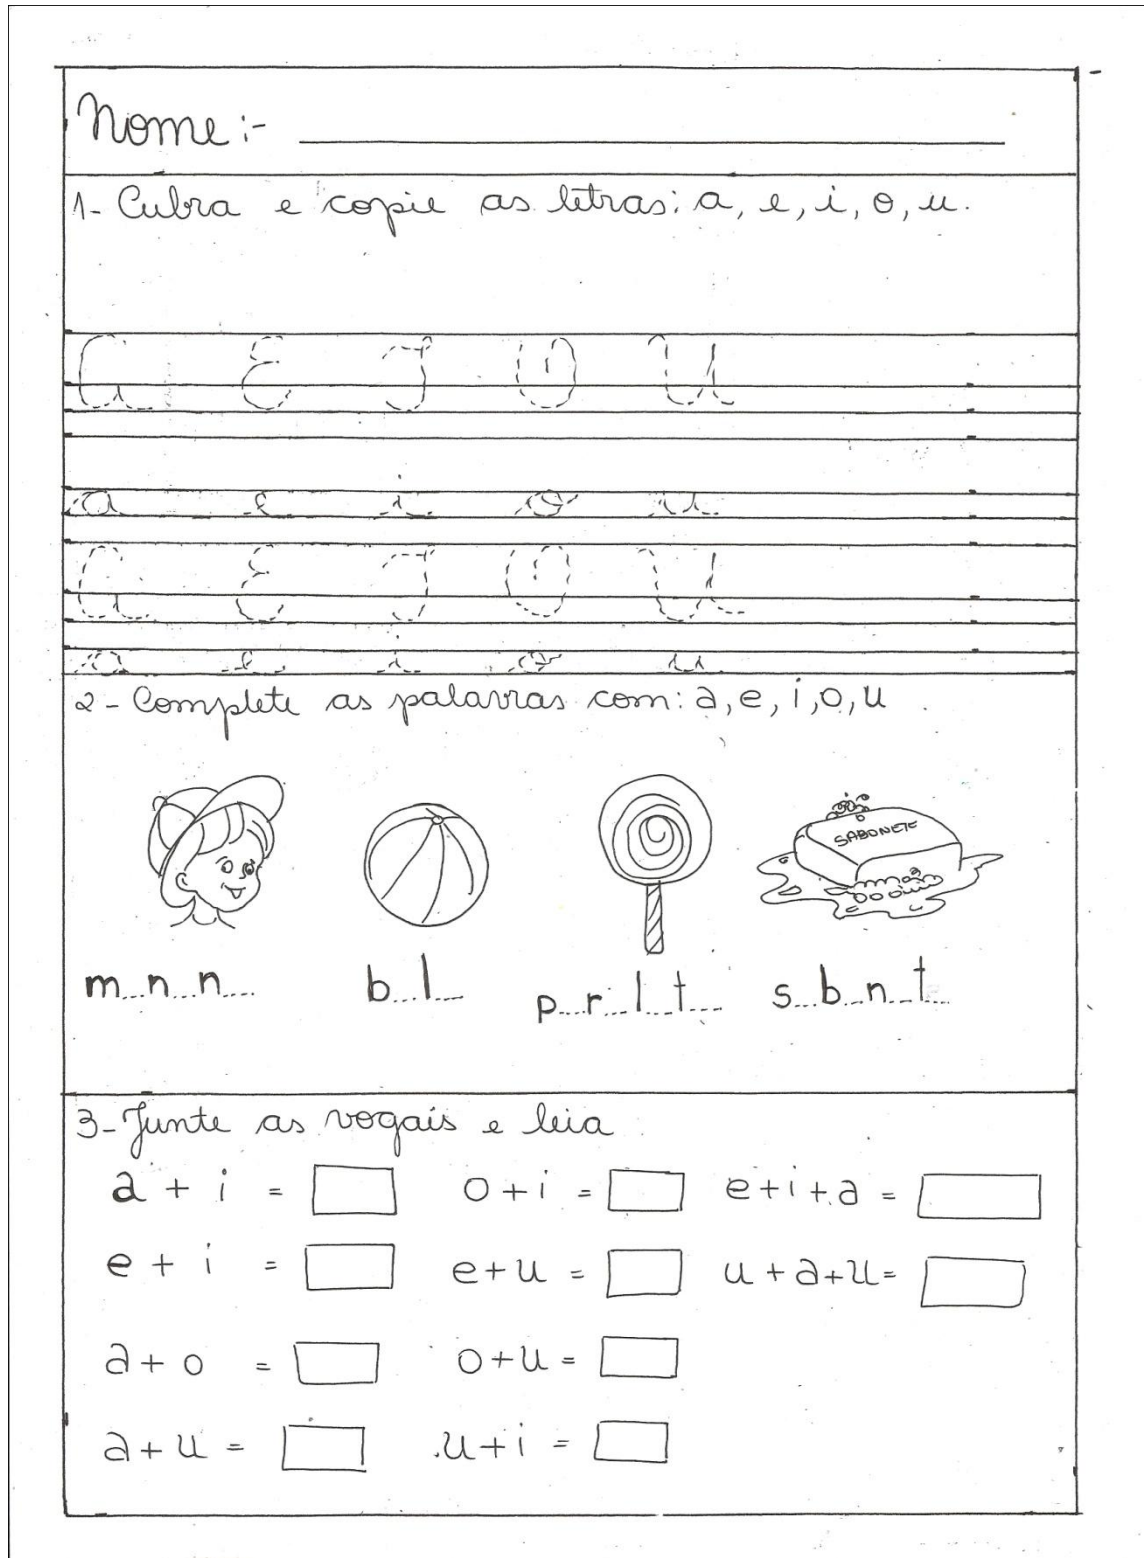 Nome:-
1- Cubra e copie as letras: a, e, i, o, u.
A E I O U
a e i o u
A E I O U
a e i o u
2- Complete as palavras com: a, e, i, o, u
SABONETE
m...n...n... b...l... p...r...l...t... s...b...n...t...
3- Junte as vogais e leia
a + i = o + i = e + i + a =
e + i = e + u = u + a + u =
a + o = o + u =
a + u = u + i =